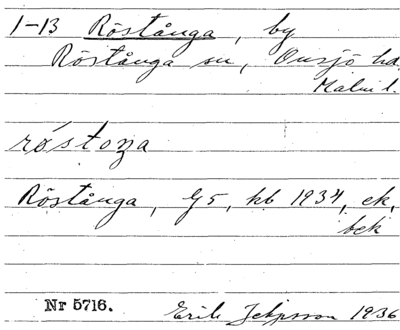 1-13 Röstånga, by
Röstånga sn, Onsjö hd.
Malm. l.
röstoŋa
Röstånga, G5, kb 1934, ek,
bek
Nr 5716.
Erik Jeppsson 1936